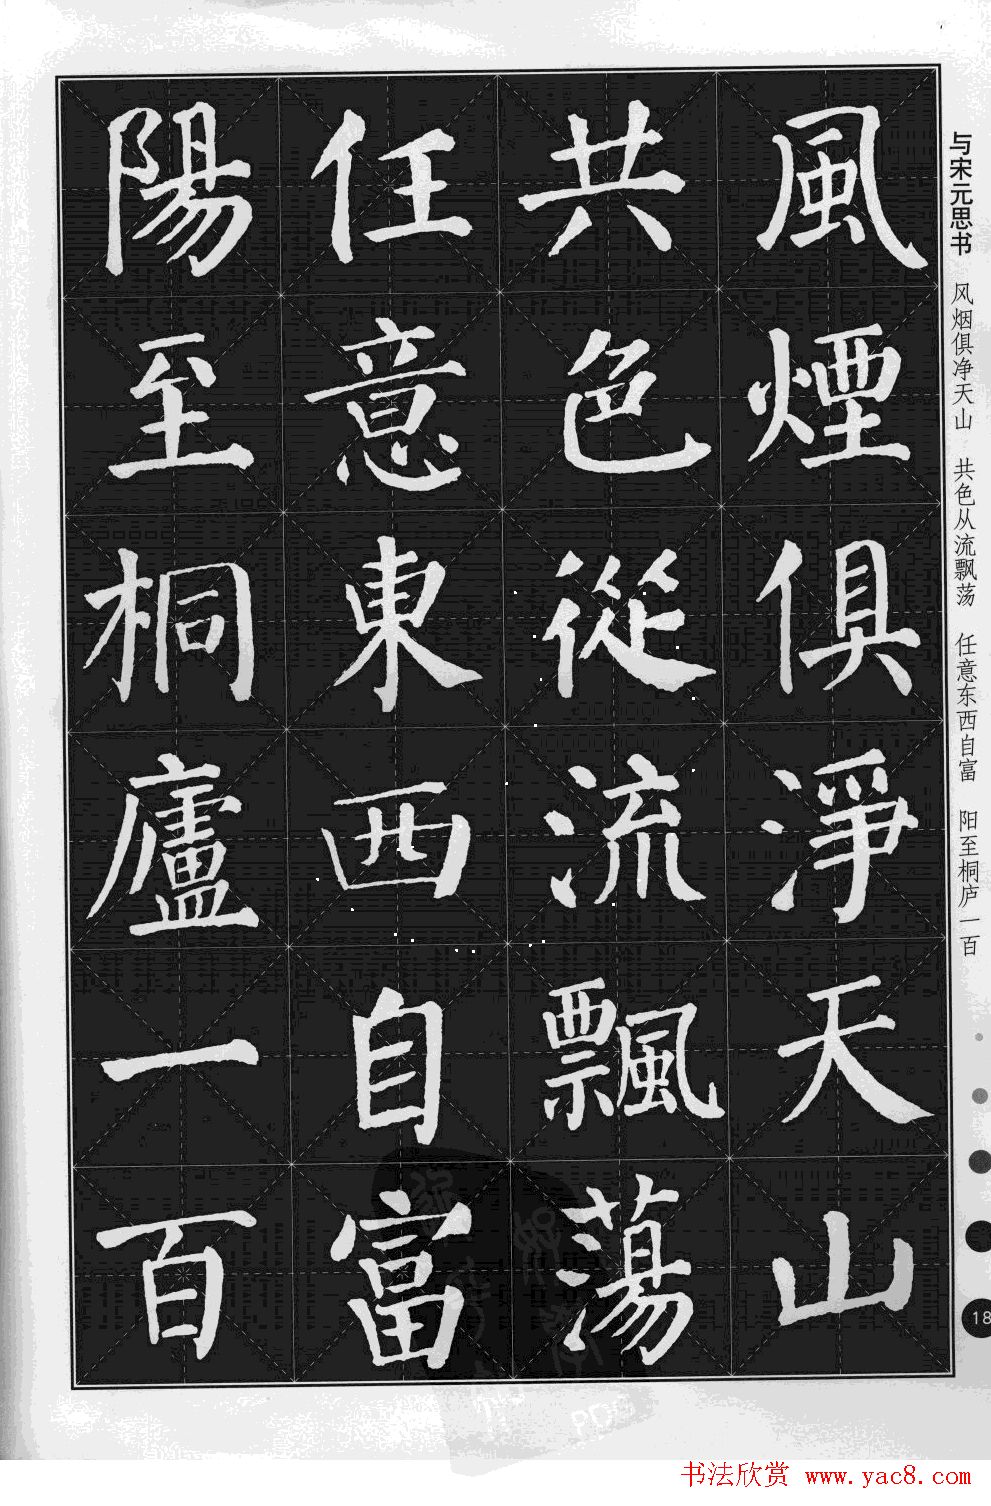 与宋元思书 风烟俱净天山 共色从流飘荡 任意东西自富 阳至桐庐一百
風煙俱淨天山
共色從流飄蕩
任意東西自富
陽至桐廬一百
18
书法欣赏 www.yac8.com